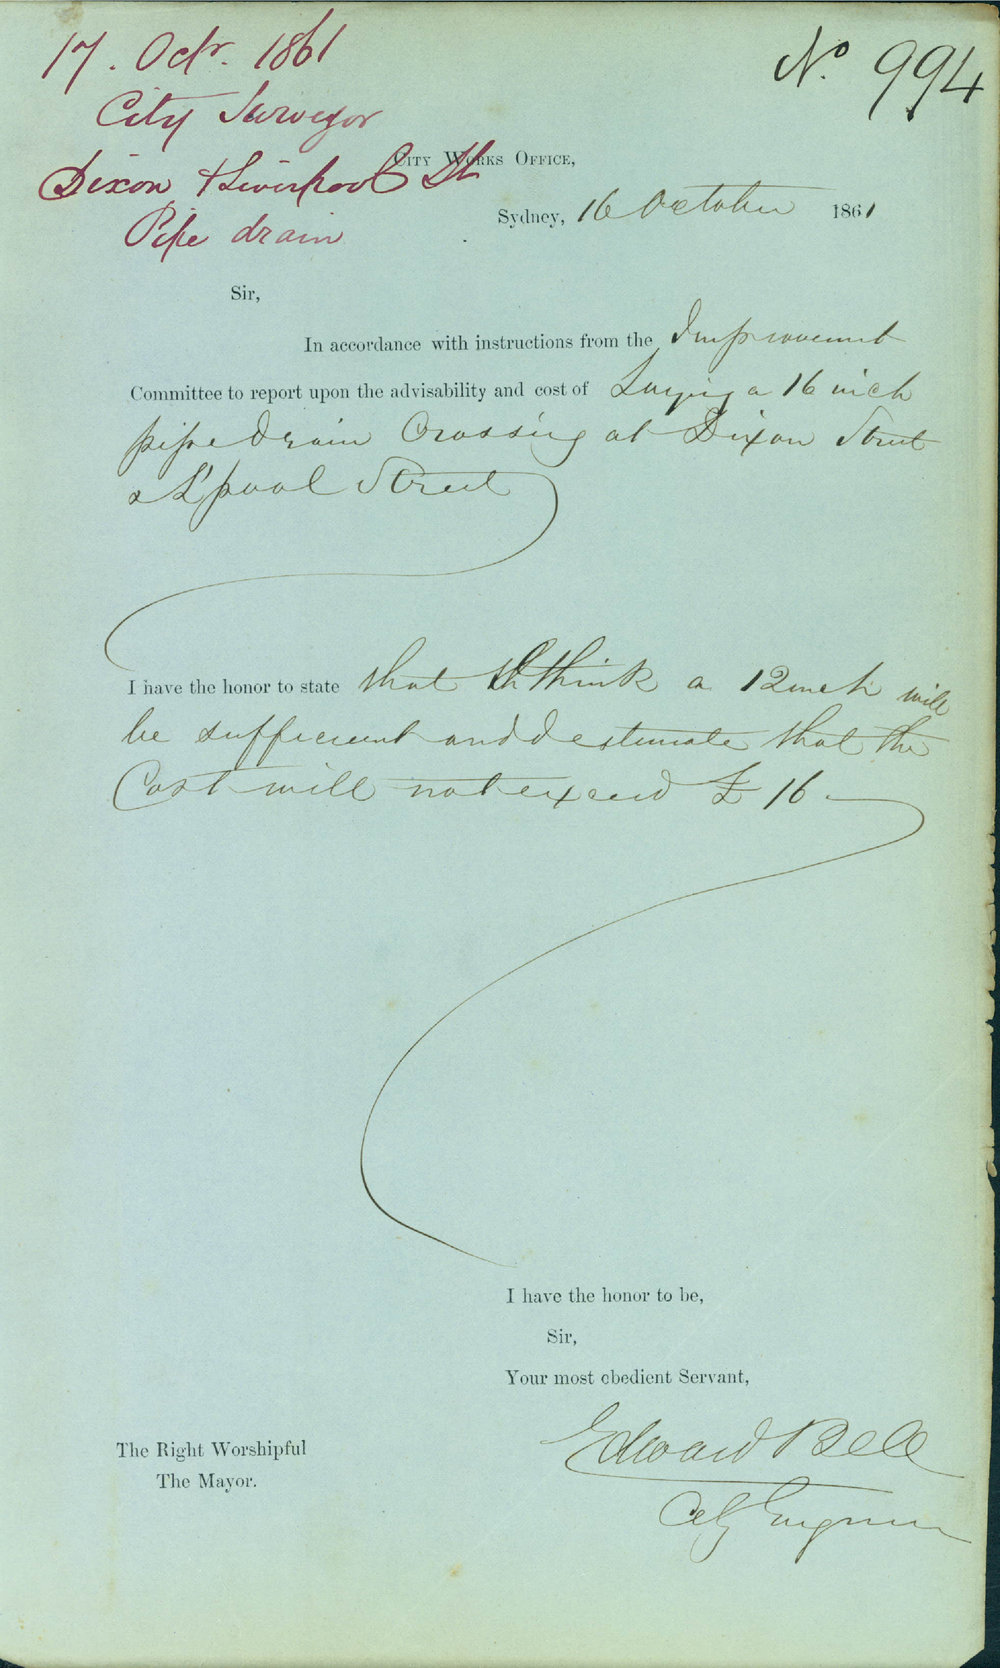 17. Octr. 1861
City Surveyor
Dixon & Liverpool Sts
Pipe drain
No. 994
City Works Office,
Sydney, 16 October 1861
Sir,
In accordance with instructions from the Improvement
Committee to report upon the advisability and cost of Laying a 16 inch
pipe drain Crossing at Dixon Street
& L'pool Street
I have the honor to state that I think a 12 inch will
be sufficient and I estimate that the
Cost will not exceed £16
I have the honor to be,
Sir,
Your most obedient Servant,
Edward Bell
City Engineer
The Right Worshipful
The Mayor.